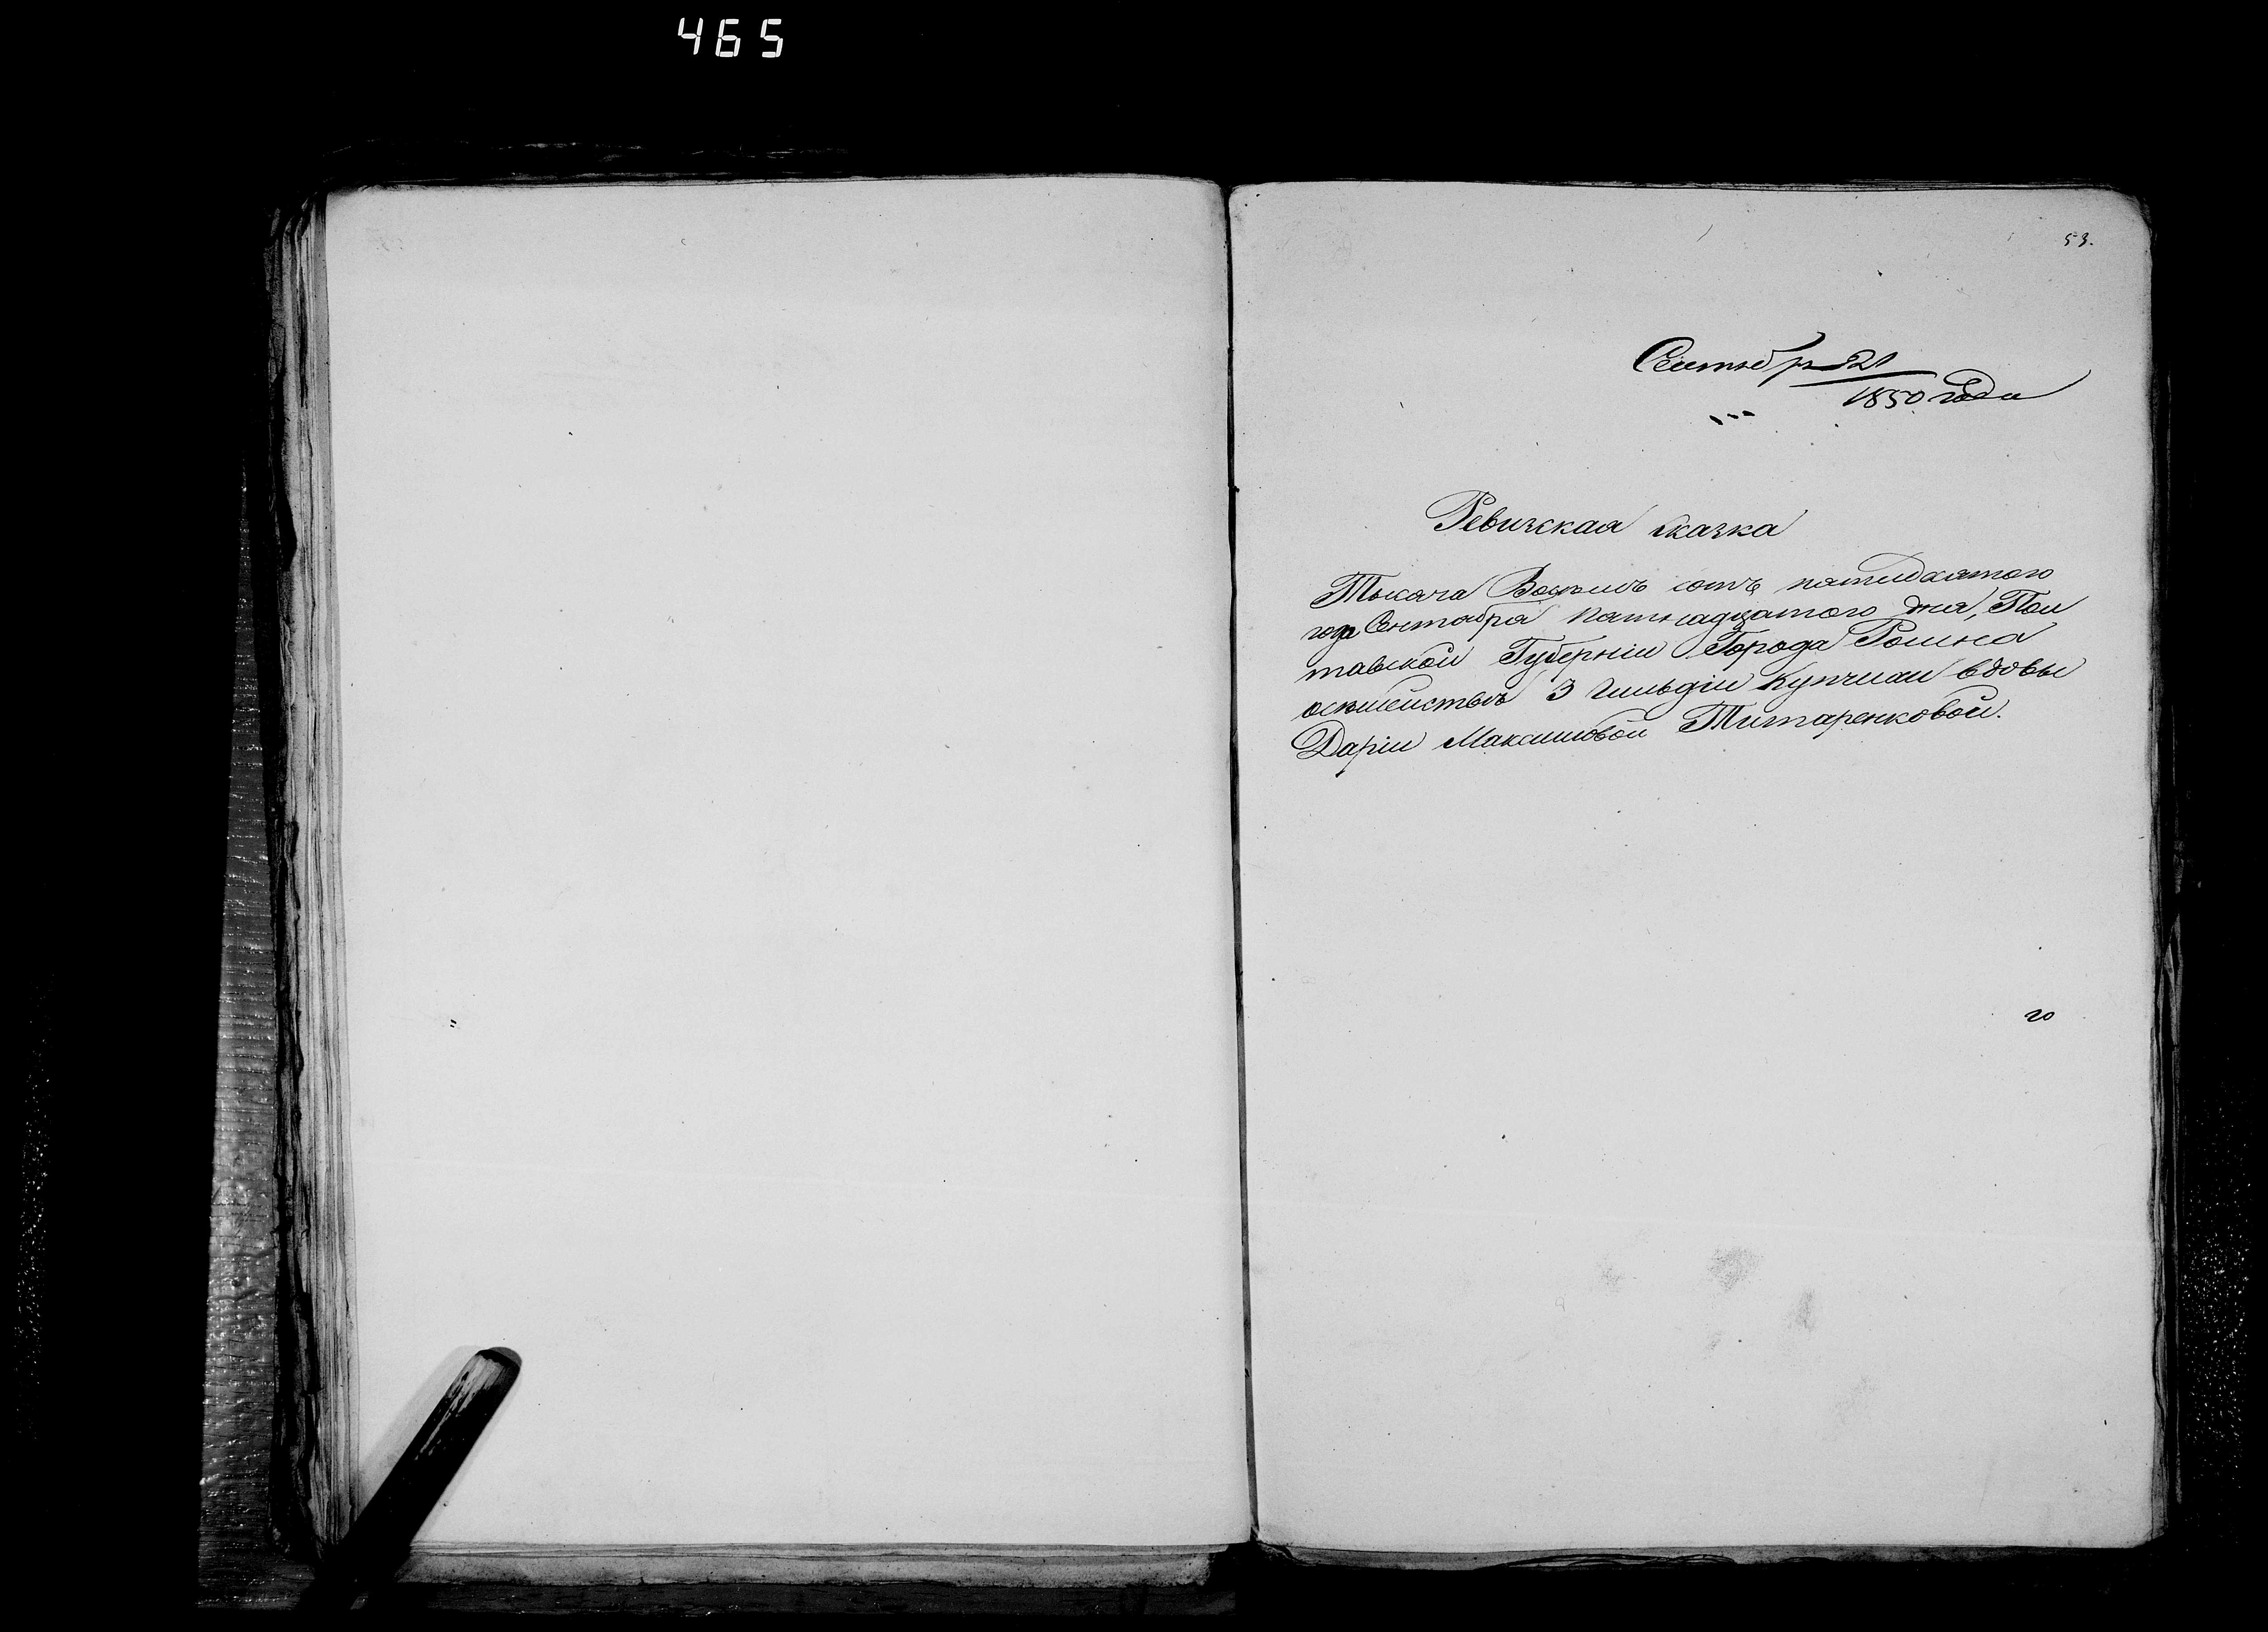 465
53.
Сентябр 21
1850 года
Ревизская сказка
Тысяча Восемь сотъ пятидсятого
года Сентября пятнадцатого дня, Пол
тавской Губерніи Города Ромна
осемействѣ 3 Гильдіи Купчихи вдовы
Даріи Максимовой Титаренковой.
го